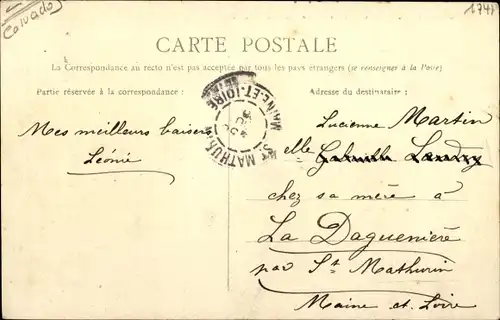 Calvados
1748
CARTE POSTALE
La Correspondance au recto n'est pas acceptée par tous les pays étrangers (se renseigner à la Poste)
Partie réservée à la correspondance :
Adresse du destinataire :
Mes meilleurs baisers
Léonie
Lucienne Martin
elle Gabrielle Landry
chez sa mère à
La Daguenière
par St Mathurin
Maine et Loire
ST MATHURIN
MAINE-ET-LOIRE